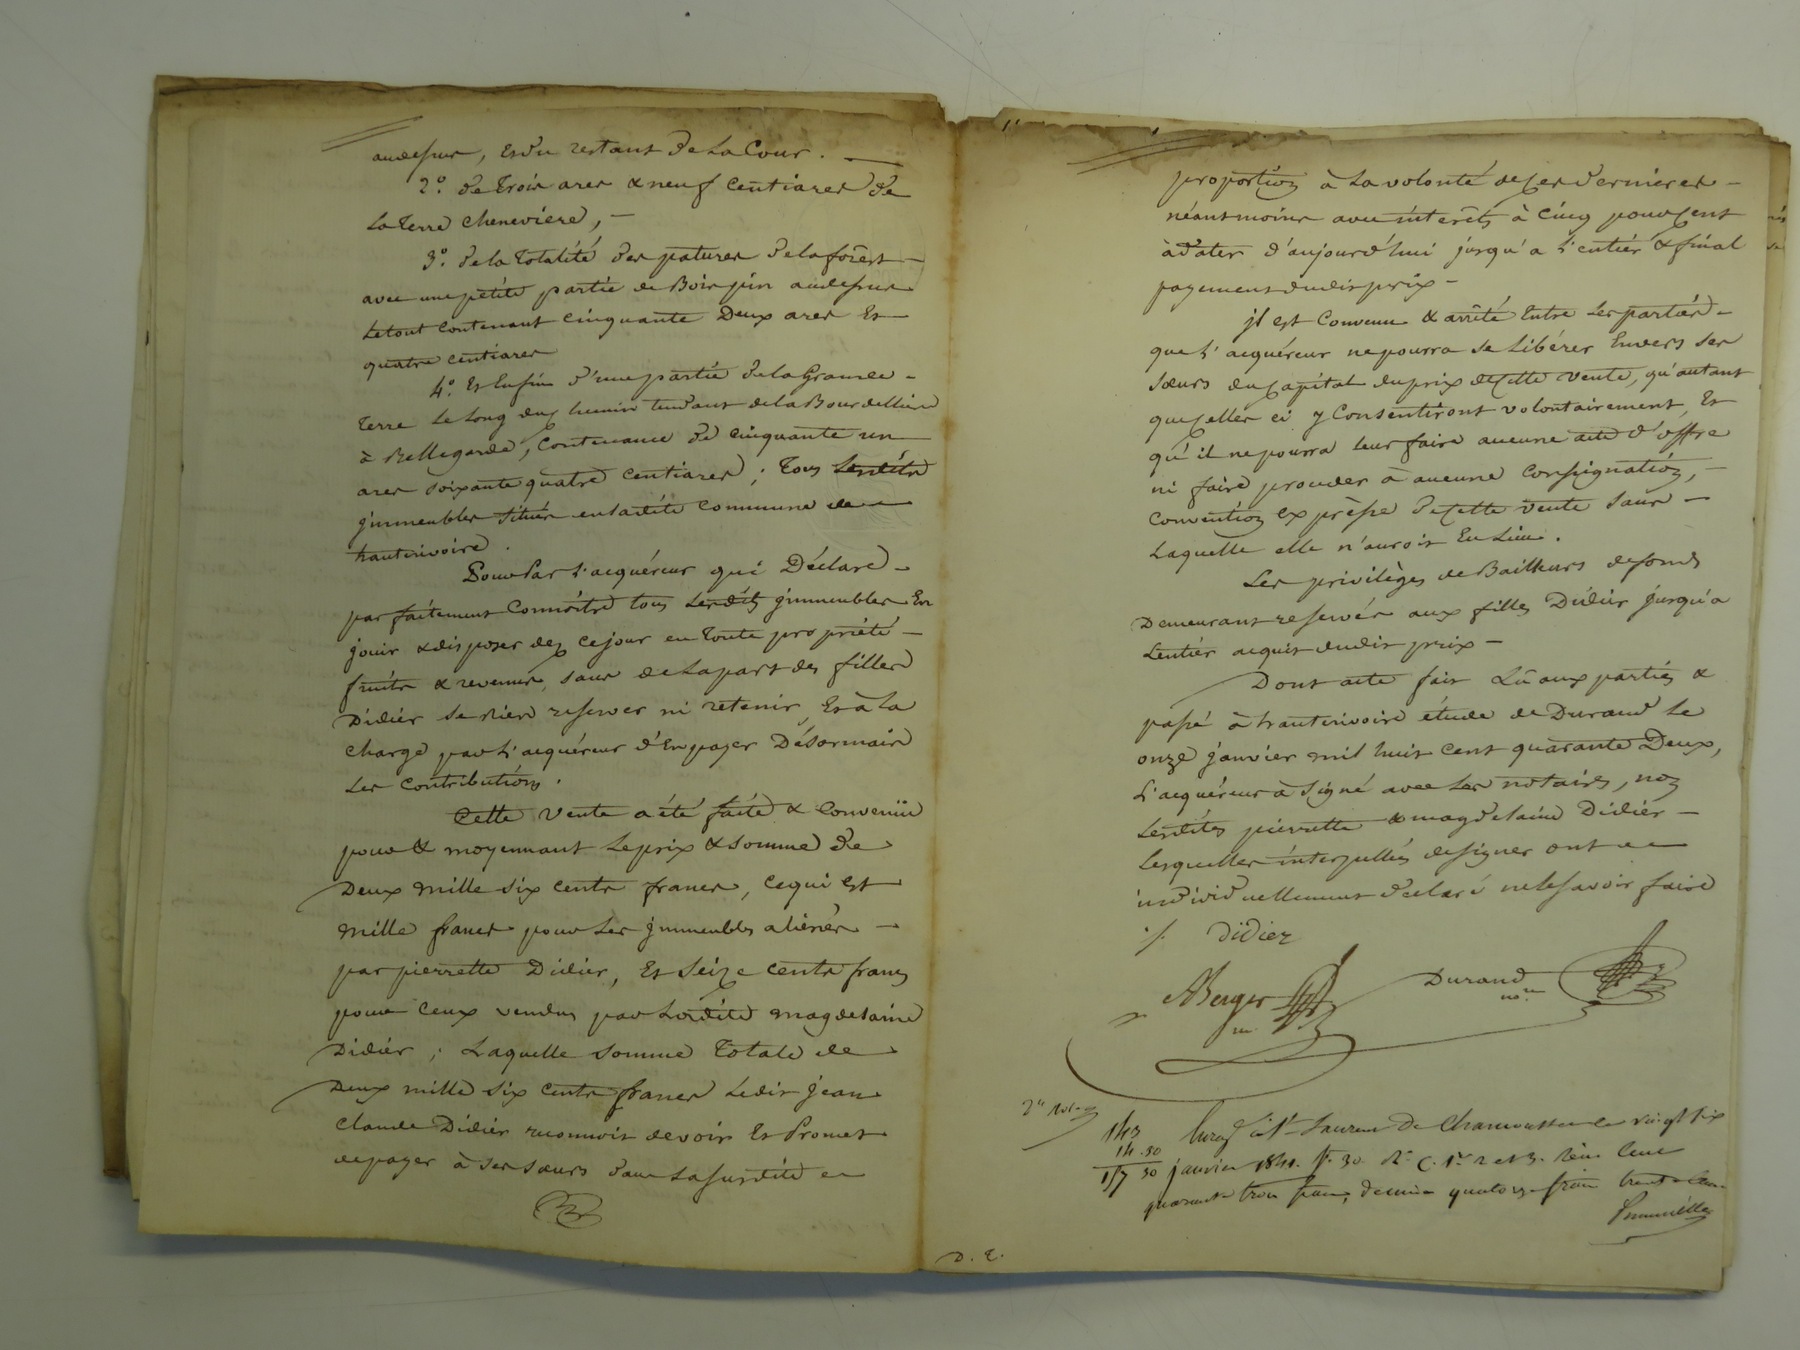 audessus, Et du restant de La Cour. —
2.° de Trois ares & neuf Centiares de
La Terre Cheneviere, —
3.° de la Totalité des patures de la forêst —
avec une petite partie de Bois pin audessus
Le tout Contenant Cinquante Deux ares Et —
quatre Centiares
4.° Et Enfin d'une partie de la Grande —
Terre Le Long du Chemin tendant de la Bourdelliere
à Bellegarde, Contenance de Cinquante un —
ares soixante quatre Centiares ; Tous Lesdits
jmmeubles situés en Ladite Commune de —
hauterivoire.
Pour Par L'acquéreur qui Déclare —
parfaitement Connoître tous Lesdits jmmeubles En
jouir & disposer dez ce jour en toute propriété —
fruits & revenus, sans de La part des filles
Didier se Rien reserver ni retenir, Et à La
Charge par L'acquéreur d'En payer Désormais
Les Contributions.
Cette Vente a été faite & Convenüe
pour & moyennant Le prix & somme de
Deux mille six Cents francs, Ce qui Est
mille francs pour Les jmmeubles aliénés —
par pierrette Didier, Et Seize Cents francs
pour Ceux vendus par Ladite magdelaine
Didier ; Laquelle somme Totale de
Deux mille six Cents francs Ledit jean
Claude Didier reconnoit devoir Et Promet
de payer à ses sœurs dans La susdite
D. T.
proportion à La volonté de Ces Dernieres —
néantmoins avec intérêts à Cinq pour Cent
à dater d'aujourd'hui jusqu'a L'entiér & final
payement dudit prix —
jl est Convenu & arrêté Entre Les parties —
que L'acquéreur ne pourra se Libérer Envers ses
sœurs du Capital du prix de Cette Vente, qu'autant
que Celles ci y Consentiront volontairement, Et
qu'il ne pourra leur faire aucune acte d'offre
ni faire proceder à aucune Consignation, —
Convention Expresse de Cette Vente sans —
Laquelle elle n'auroit Eu Lieu.
Les privilèges de Bailleurs de fonds
Demeurant reservés aux filles Didier jusqu'a
L'entiér acquit dudit prix —
Dont acte fait Lû aux parties &
passé à hauterivoire étude de Durand Le
onze janvier mil huit Cent quarante Deux,
L'acquéreur à signé avec Les notaires, non
Lesdites pierrette & magdelaine Didier —
Lesquelles interpellées de signer ont
individuellement déclaré ne le savoir faire
./. Didier
ABerger Durand
n.re
143
14.30
157 30
Enreg.é à S.t Laurent De Chamousset le vingt six
janvier f.° 30 R.° C. 1.re 2 et 3. Reçu Cent
quarante trois francs, decime quatorze francs trente Cent.